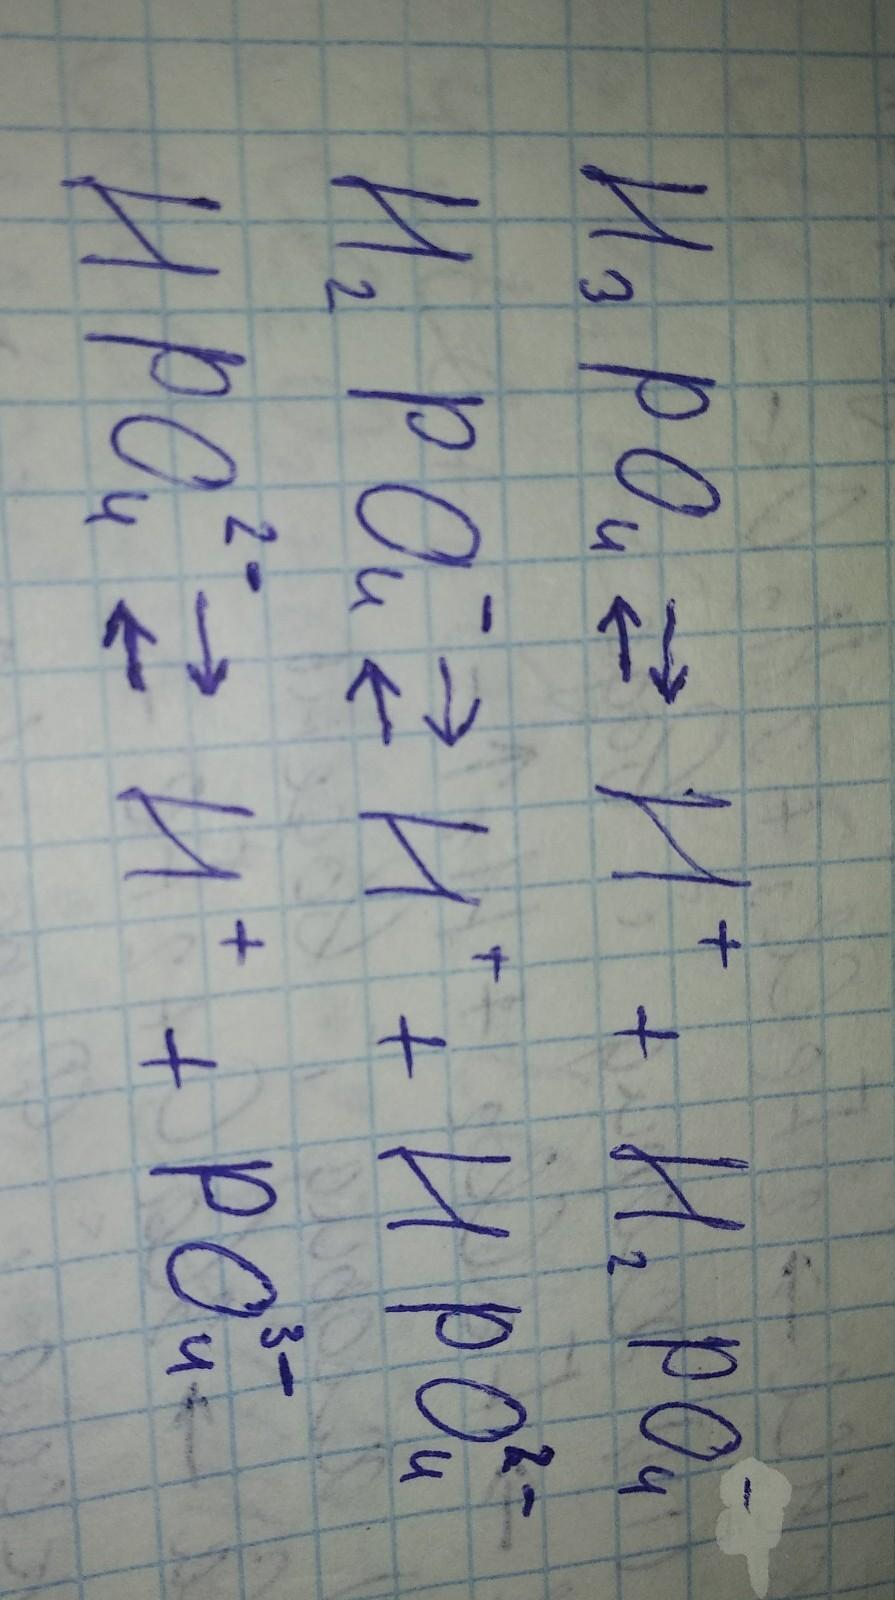 H₃PO₄ ⇄ H⁺ + H₂PO₄⁻
H₂PO₄⁻ ⇄ H⁺ + HPO₄²⁻
HPO₄²⁻ ⇄ H⁺ + PO₄³⁻